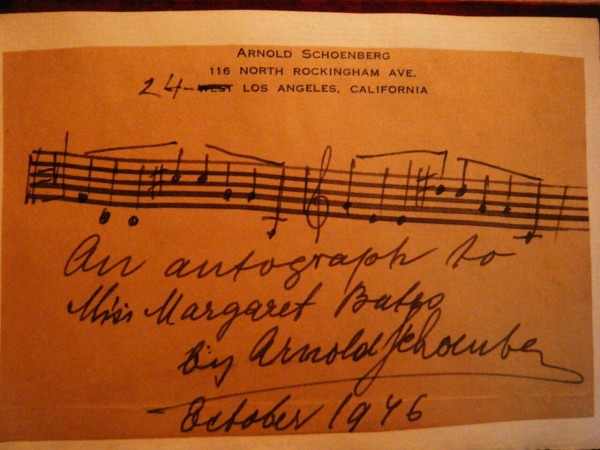 ARNOLD SCHOENBERG
116 NORTH ROCKINGHAM AVE.
24- WEST LOS ANGELES, CALIFORNIA
An autograph to
Miss Margaret
by Arnold Schoenberg
October 1946